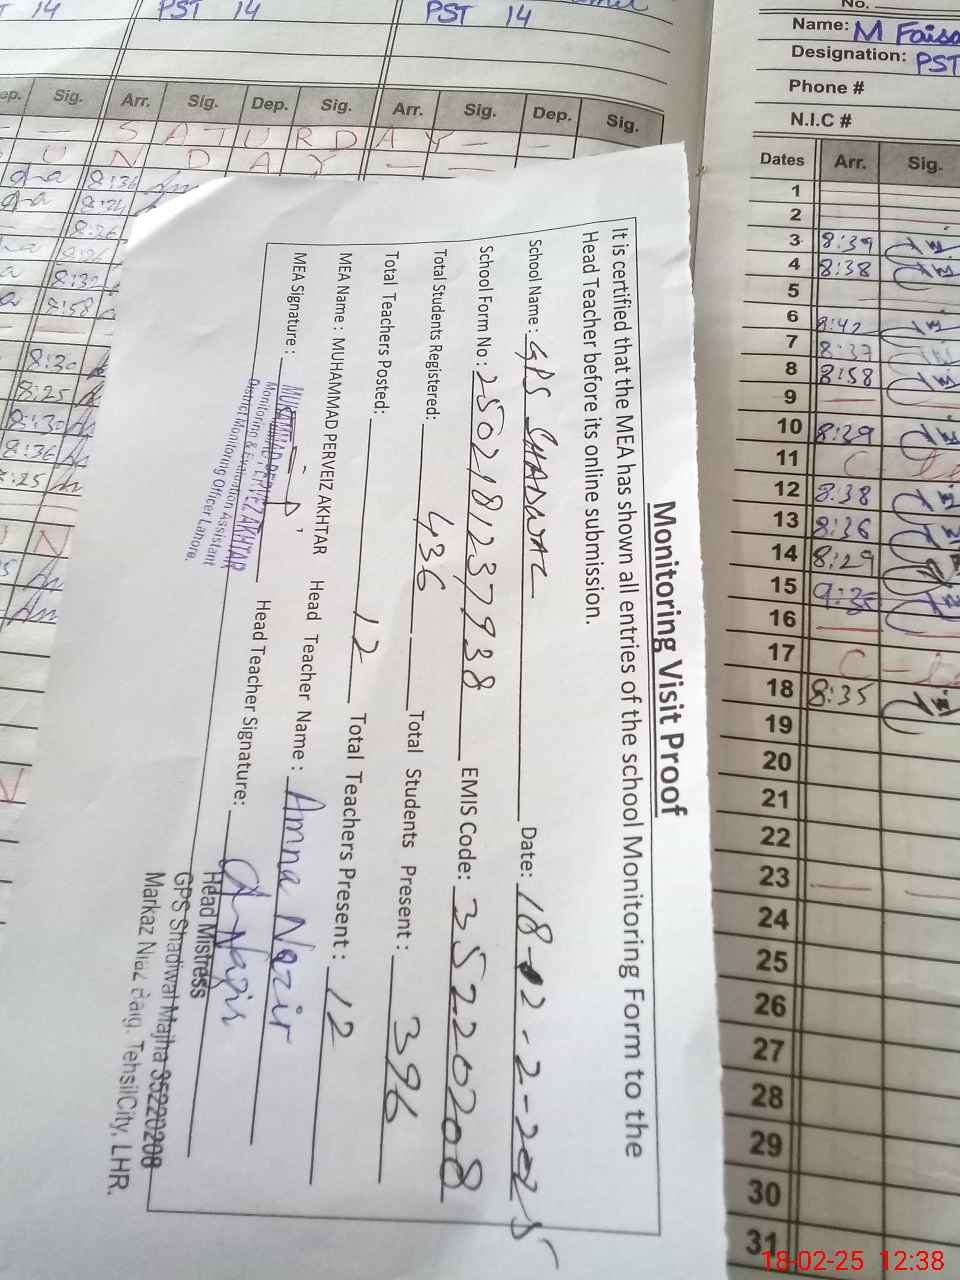 PST 14 PST 14
Sig. Arr. Sig. Dep. Sig. Arr. Sig. Dep. Sig.
S A T U R D A Y
U N D A Y
8:36
8:30
8:25
8:30
8:36
Monitoring Visit Proof
It is certified that the MEA has shown all entries of the school Monitoring Form to the
Head Teacher before its online submission.
School Name : GPS SHADWAL Date: 18-02-2-2025
School Form No : 2502181237938 EMIS Code: 35220208
Total Students Registered: 436 Total Students Present : 396
Total Teachers Posted: 12 Total Teachers Present : 12
MEA Name : MUHAMMAD PERVEIZ AKHTAR Head Teacher Name : Amna Nazir
MEA Signature : Head Teacher Signature: A Nazir
MUHAMMAD PERVEZ AKHTAR
Monitoring & Evaluation Assistant
District Monitoring Officer Lahore.
Head Mistress
GPS Shadiwal Majha 35220208
Markaz Niaz Baig. TehsilCity, LHR.
No.
Name: M Faisa
Designation: PST
Phone #
N.I.C #
Dates Arr. Sig.
1
2
3 8:39
4 8:38
5
6 8:42
7 8:37
8 8:58
9
10 8:39
11
12 8:38
13 8:36
14 8:29
15 9:35
16
17
18 8:35
19
20
21
22
23
24
25
26
27
28
29
30
31
18-02-25 12:38